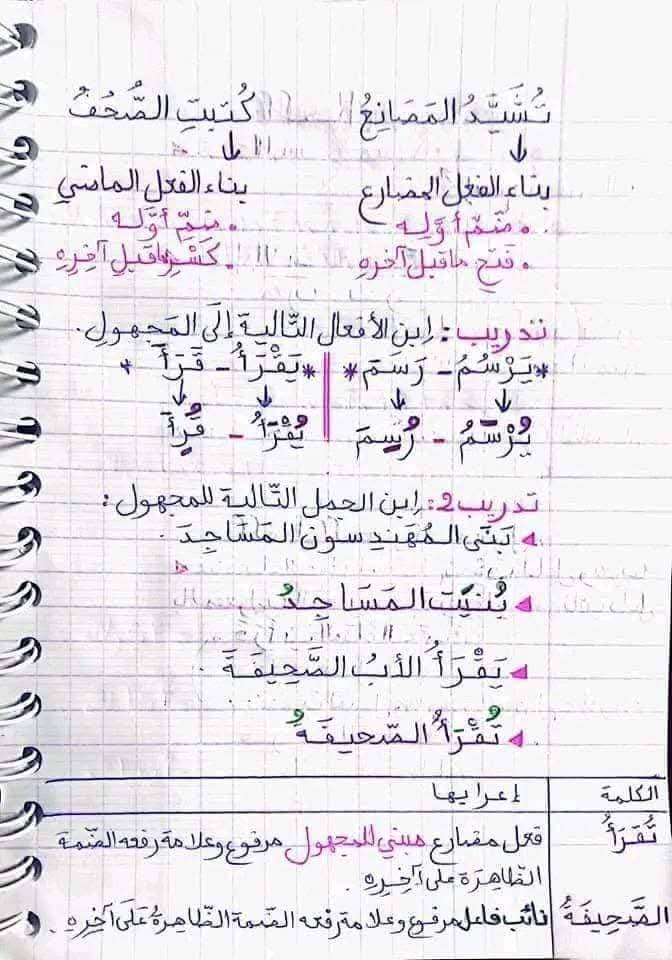 تُشَيَّدُ المَصَانِعُ كُتِبَتِ الصُّحُفُ
↓ ↓
بناء الفعل المضارع بناء الفعل الماضي
• ضمّ أوَّلِه • ضمّ أوَّله
• فَتْحِ ما قبل آخرِهِ • كَسْرِ ما قبل آخِرِهِ
تدريب: اِبنِ الأفعال التّالية إلَى المَجهولِ.
*يَرْسُمُ - رَسَمَ * *يَقْرَأُ - قَرَأَ *
↓ ↓ ↓ ↓
يُرْسَمُ - رُسِمَ يُقْرَأُ - قُرِأَ
تدريب 2: اِبنِ الجمل التّالية للمجهول:
بَنَى المُهَندِسُونَ المَسَاجِدَ.
بُنِيَت المَسَاجِدُ
يَقْرَأُ الأبُ الصَّحِيفَةَ.
تُقْرَأُ الصّحيفَةُ
الكلمة إعرابها
تُقرَأُ فعل مضارع مبني للمجهول مرفوع وعلامة رفعه الضّمة
الظّاهِرَة على آخِرِهِ.
الصَّحِيفَةُ نائب فاعل مرفوع وعلامة رفعه الضمة الظّاهرةُ عَلَى آخِرِهِ.